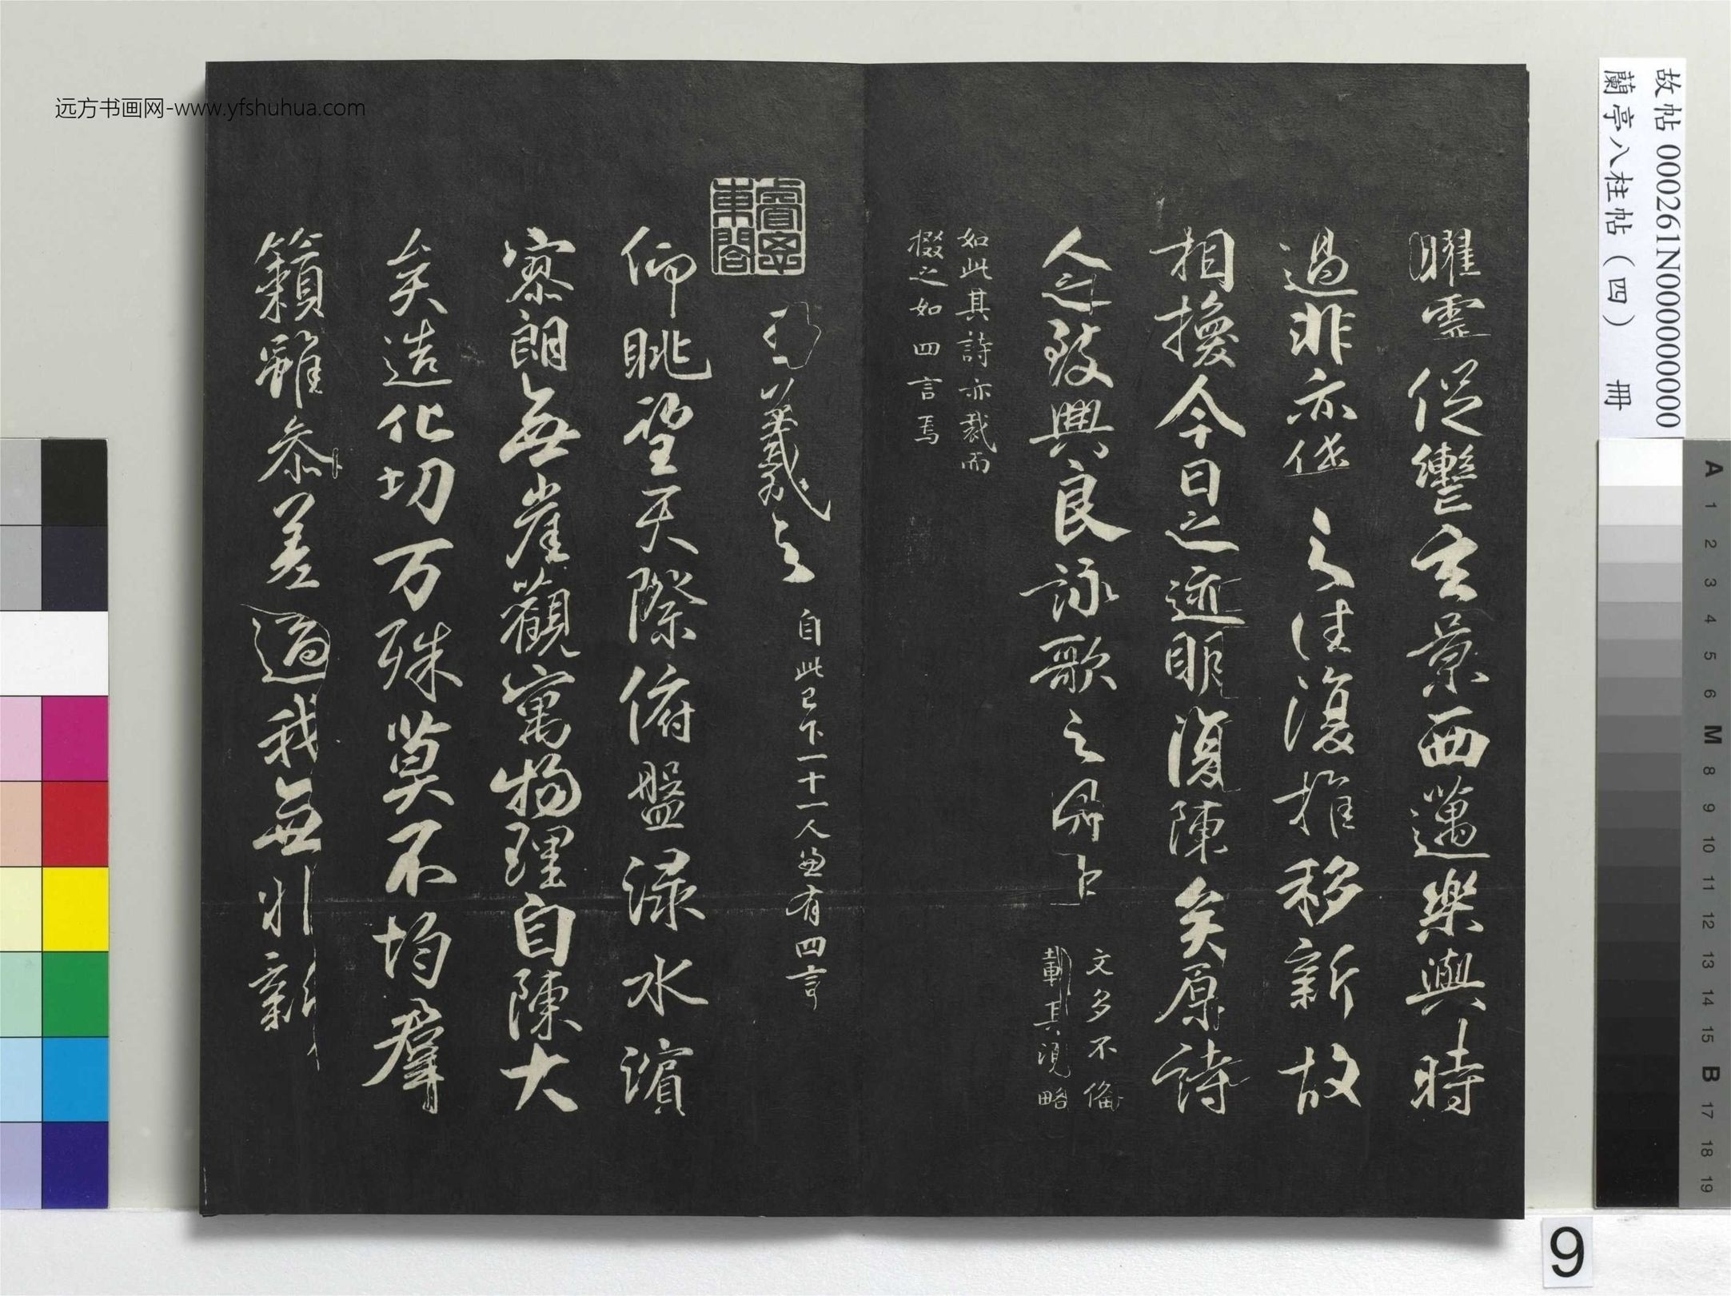 故帖 000261N000000000
蘭亭八柱帖（四） 冊
曜靈促轡玄景西邁樂與時
過非亦係之往復推移新故
相換今日之迹明復陳矣原詩
人之致興良詠歌之
文多不備
載其略
如此其詩亦裁而
掇之如四言焉
羲之 自此已下一十一人並有四言
睿思東閣
仰眺望天際俯盤淥水濱
寥朗無崖觀寓物理自陳大
矣造化切万殊莫不均羣
籟雖參差適我無非新
远方书画网-www.yfshuhua.com
A 1 2 3 4 5 6 M 8 9 10 11 12 13 14 15 B 17 18 19
9